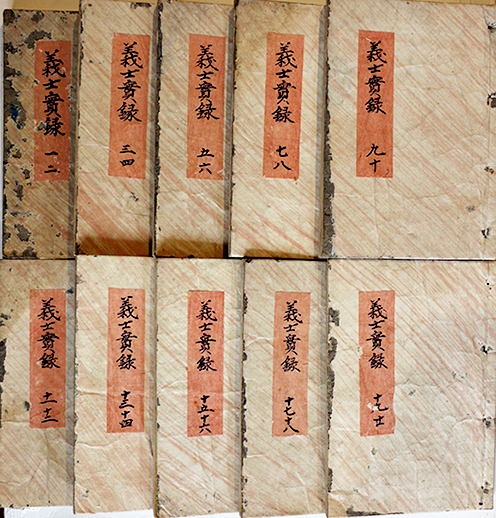 義士實録 一二
義士實録 三四
義士實録 五六
義士實録 七八
義士實録 九十
義士實録 十一十二
義士實録 十三十四
義士實録 十五十六
義士實録 十七十八
義士實録 十九